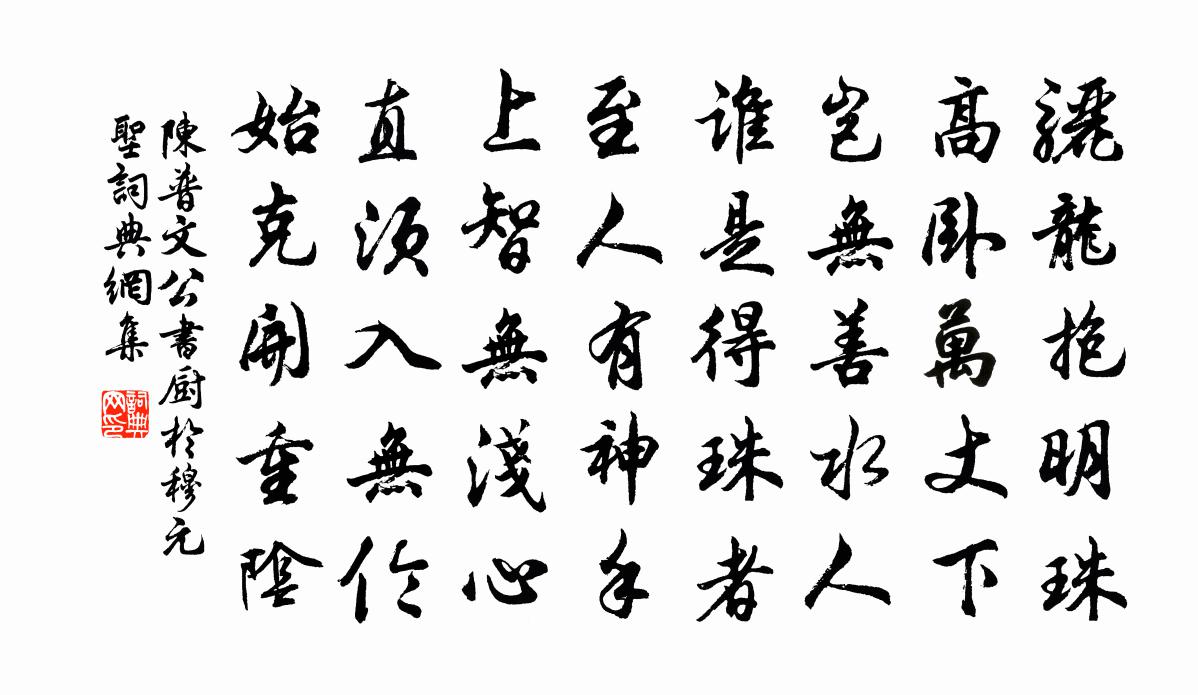 驪龍抱明珠
高臥萬丈下
豈無善水人
誰是得珠者
至人有神手
上智無淺心
直須入無伦
始克開重陰
陳普文公書厨於穆元
聖詞典網集
詞典
网印